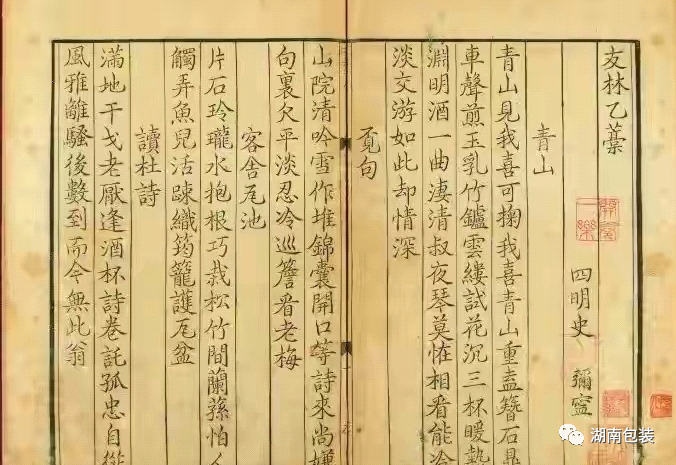 友林乙藁
開卷一樂
四明史 彌寧
青山
青山見我喜可掬我喜青山重盍簪石鼎
車聲煎玉乳竹鑪雲縷試花沉三杯暖熱
淵明酒一曲淒清叔夜琴莫恠相看能冷
淡交游如此却情深
覔句
山院清吟雪作堆錦囊開口等詩來尚嫌
句裏欠平淡忍冷巡簷看老梅
客舍瓦池
片石玲瓏水抱根巧栽松竹間蘭蓀怕人
觸弄魚兒活踈織筠籠護瓦盆
讀杜詩
滿地干戈老厭逢酒杯詩卷託孤忠自從
風雅離騷後數到而今無此翁
湖南包装